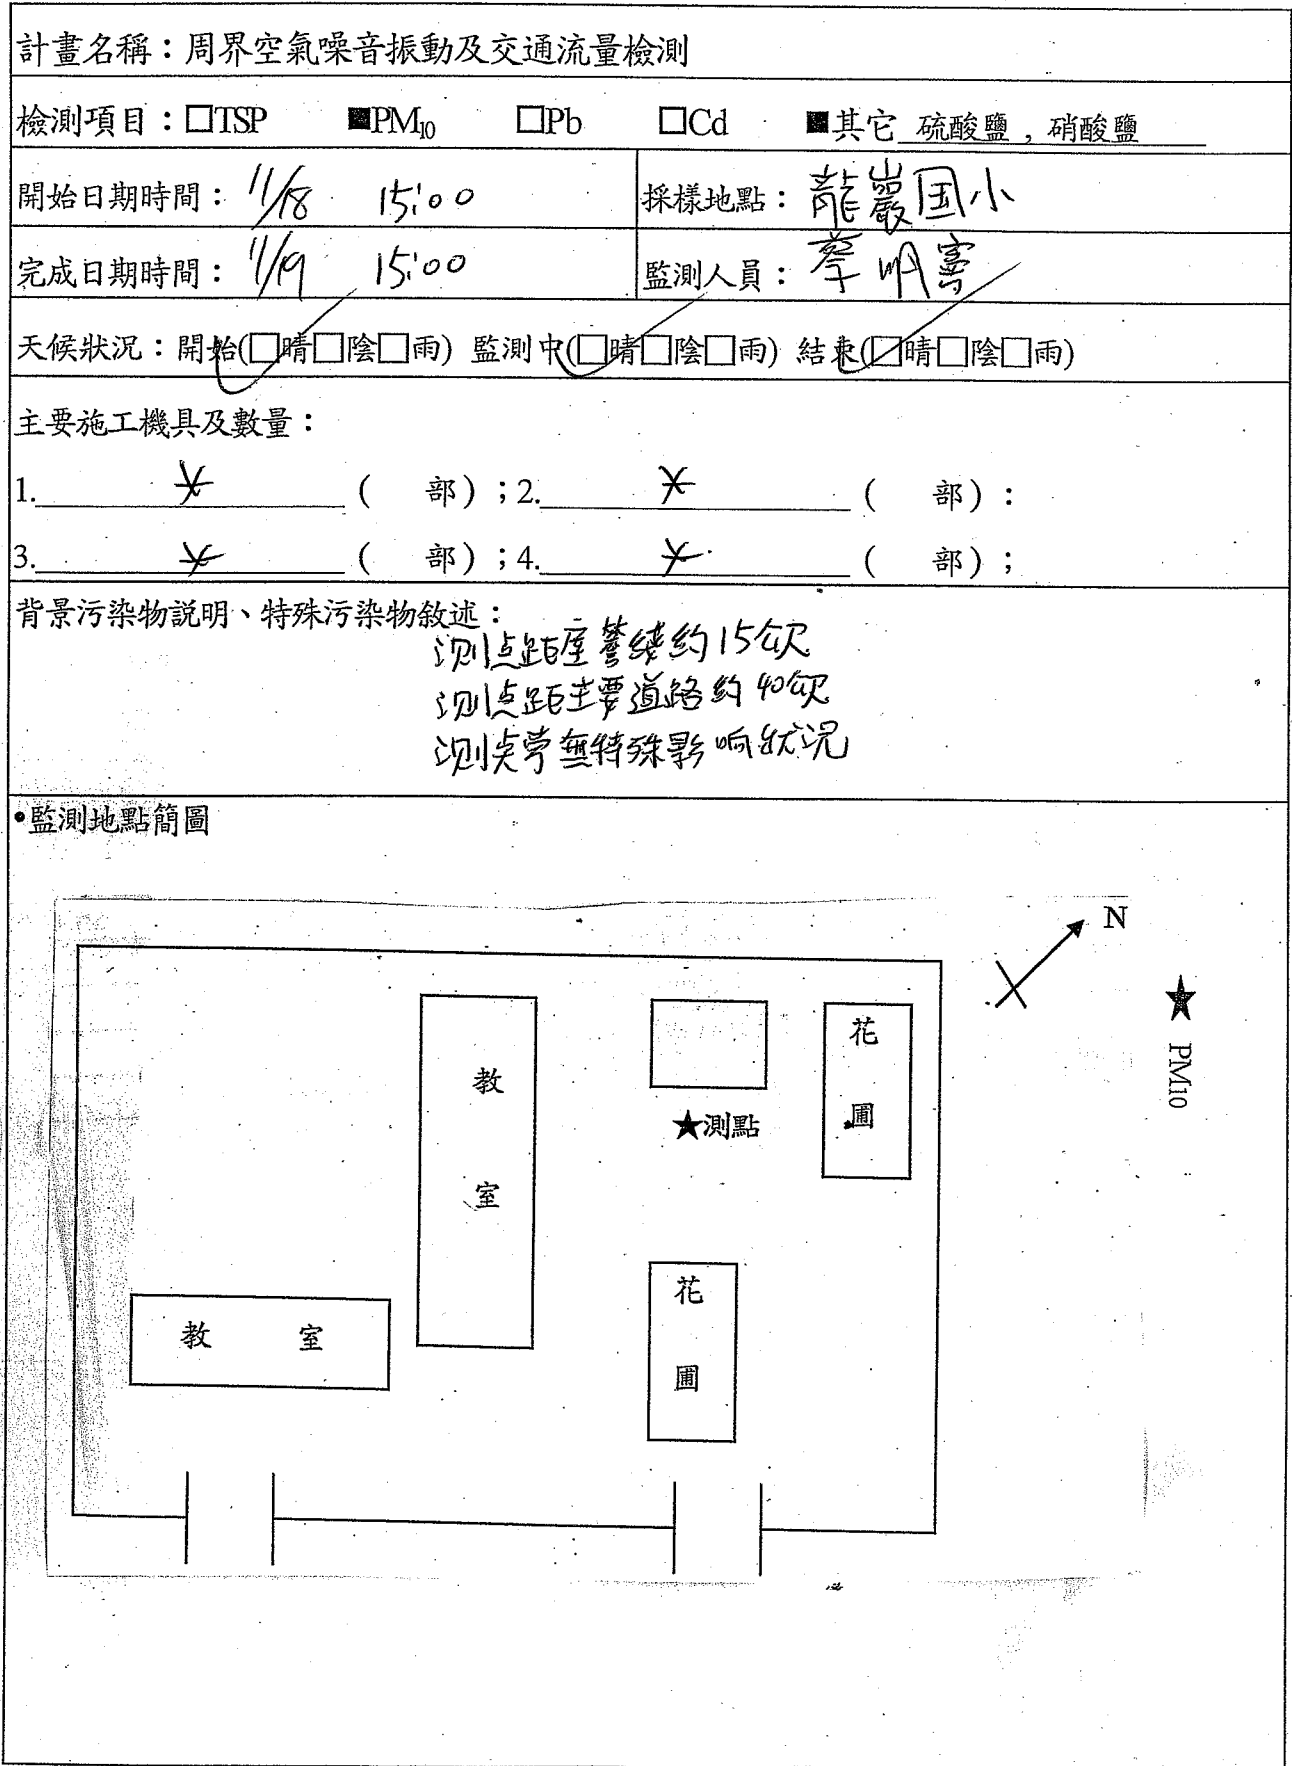 計畫名稱：周界空氣噪音振動及交通流量檢測
檢測項目：□TSP ■PM10 □Pb □Cd ■其它 硫酸鹽，硝酸鹽
開始日期時間：11/18 15:00 採樣地點：龍巖国小
完成日期時間：11/19 15:00 監測人員：蔡明
天候狀況：開始(□晴□陰□雨) 監測中(□晴□陰□雨) 結束(□晴□陰□雨)
主要施工機具及數量：
1. ( 部)；2. ( 部)：
3. ( 部)；4. ( 部)；
背景污染物說明、特殊污染物敘述：
测点距建築線約15公尺
测点距主要道路約40公尺
测点旁無特殊影响狀况
•監測地點簡圖
N
花圃
教室
★測點
★ PM10
花圃
教室